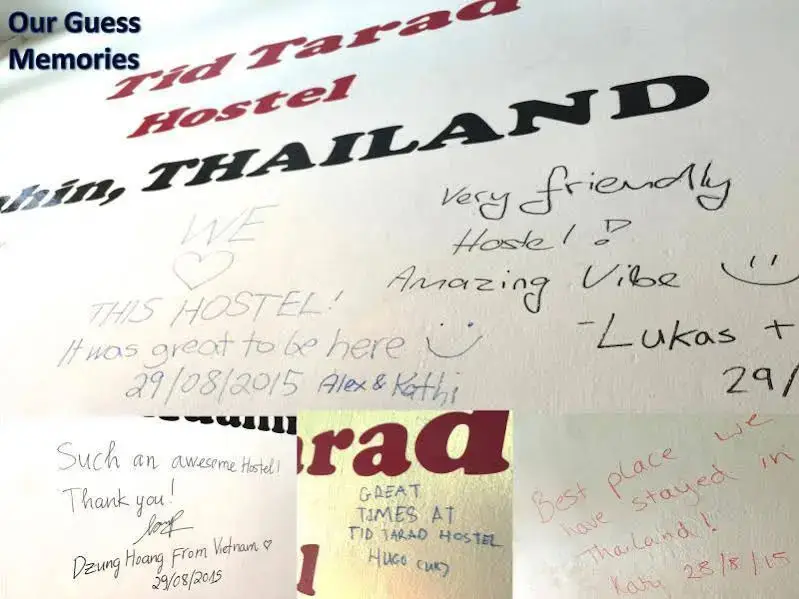 Our Guess
Memories
Tid Tarad
Hostel
hin, THAILAND
WE
♡
THIS HOSTEL!
It was great to be here
29/08/2015 Alex & Kathi
Very friendly
Hostel!
Amazing Vibe
-Lukas +
29/
Such an awesome Hostel!
Thank you!
Dzung Hoang From Vietnam ♡
29/08/2015
arad
GREAT
TIMES AT
TID TARAD HOSTEL
HUGO (UK)
Best place we
have stayed in
Thailand!
Katy 28/8/15